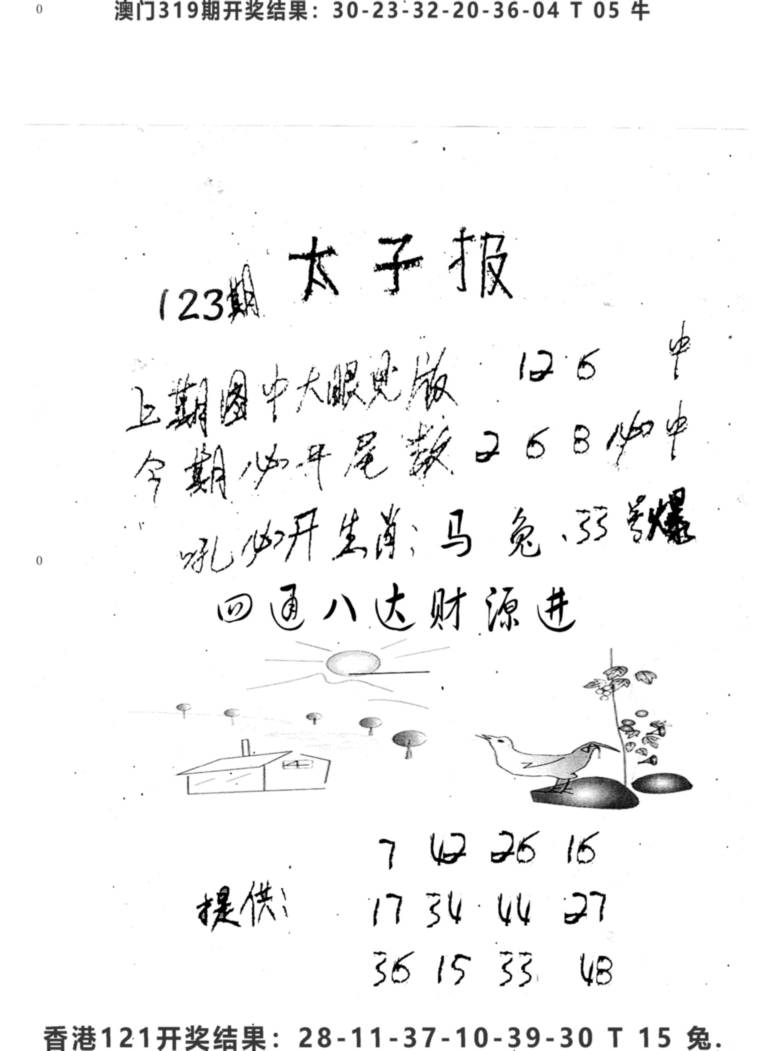 0
澳门319期开奖结果：30-23-32-20-36-04 T 05 牛
太子报
123期
上期图中大眼见版 12 6 中
今期必开尾数 2 6 8 必中
吼必开生肖：马 兔.33号爆
0
四通八达财源进
7 42 26 16
提供： 17 34 44 27
36 15 33 48
香港121开奖结果：28-11-37-10-39-30 T 15 兔.